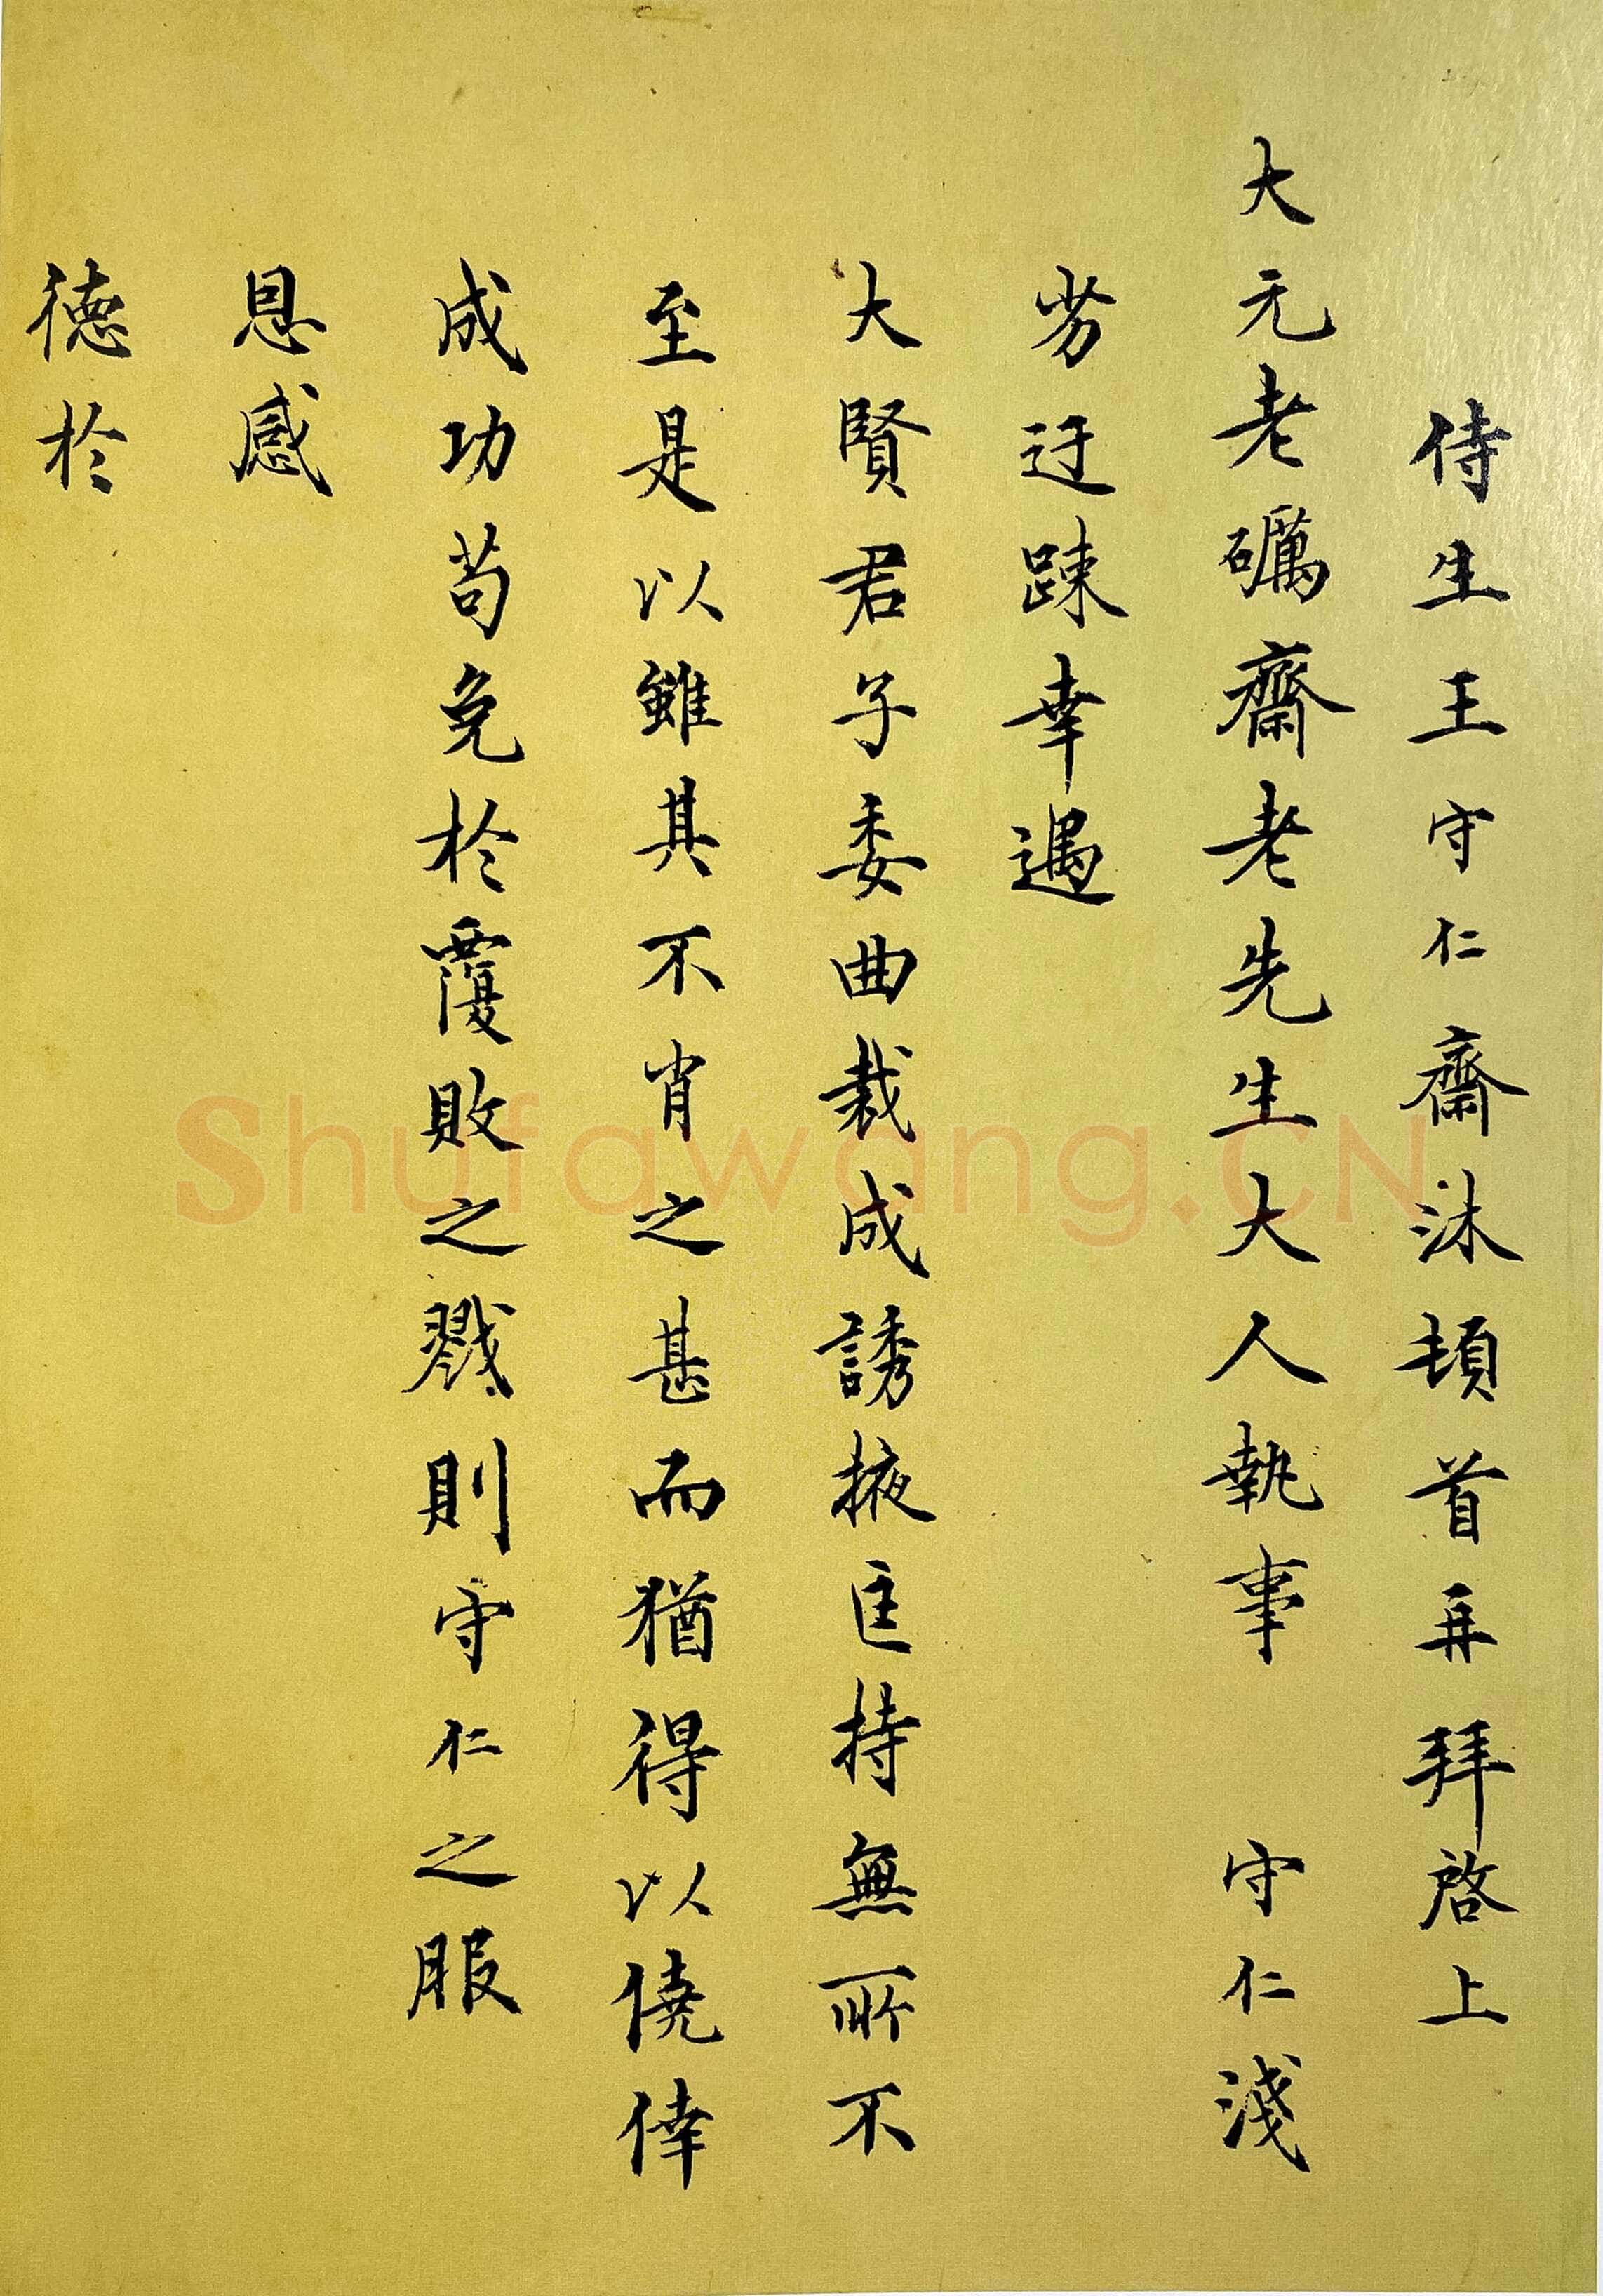 侍生王守仁齋沐頓首再拜啓上
大元老礪齋老先生大人執事 守仁淺
劣迂踈幸遇
大賢君子委曲裁成誘掖匡持無所不
至是以雖其不肖之甚而猶得以僥倖
成功苟免於覆敗之戮則守仁之服
恩感
徳於
Shufawang.CN